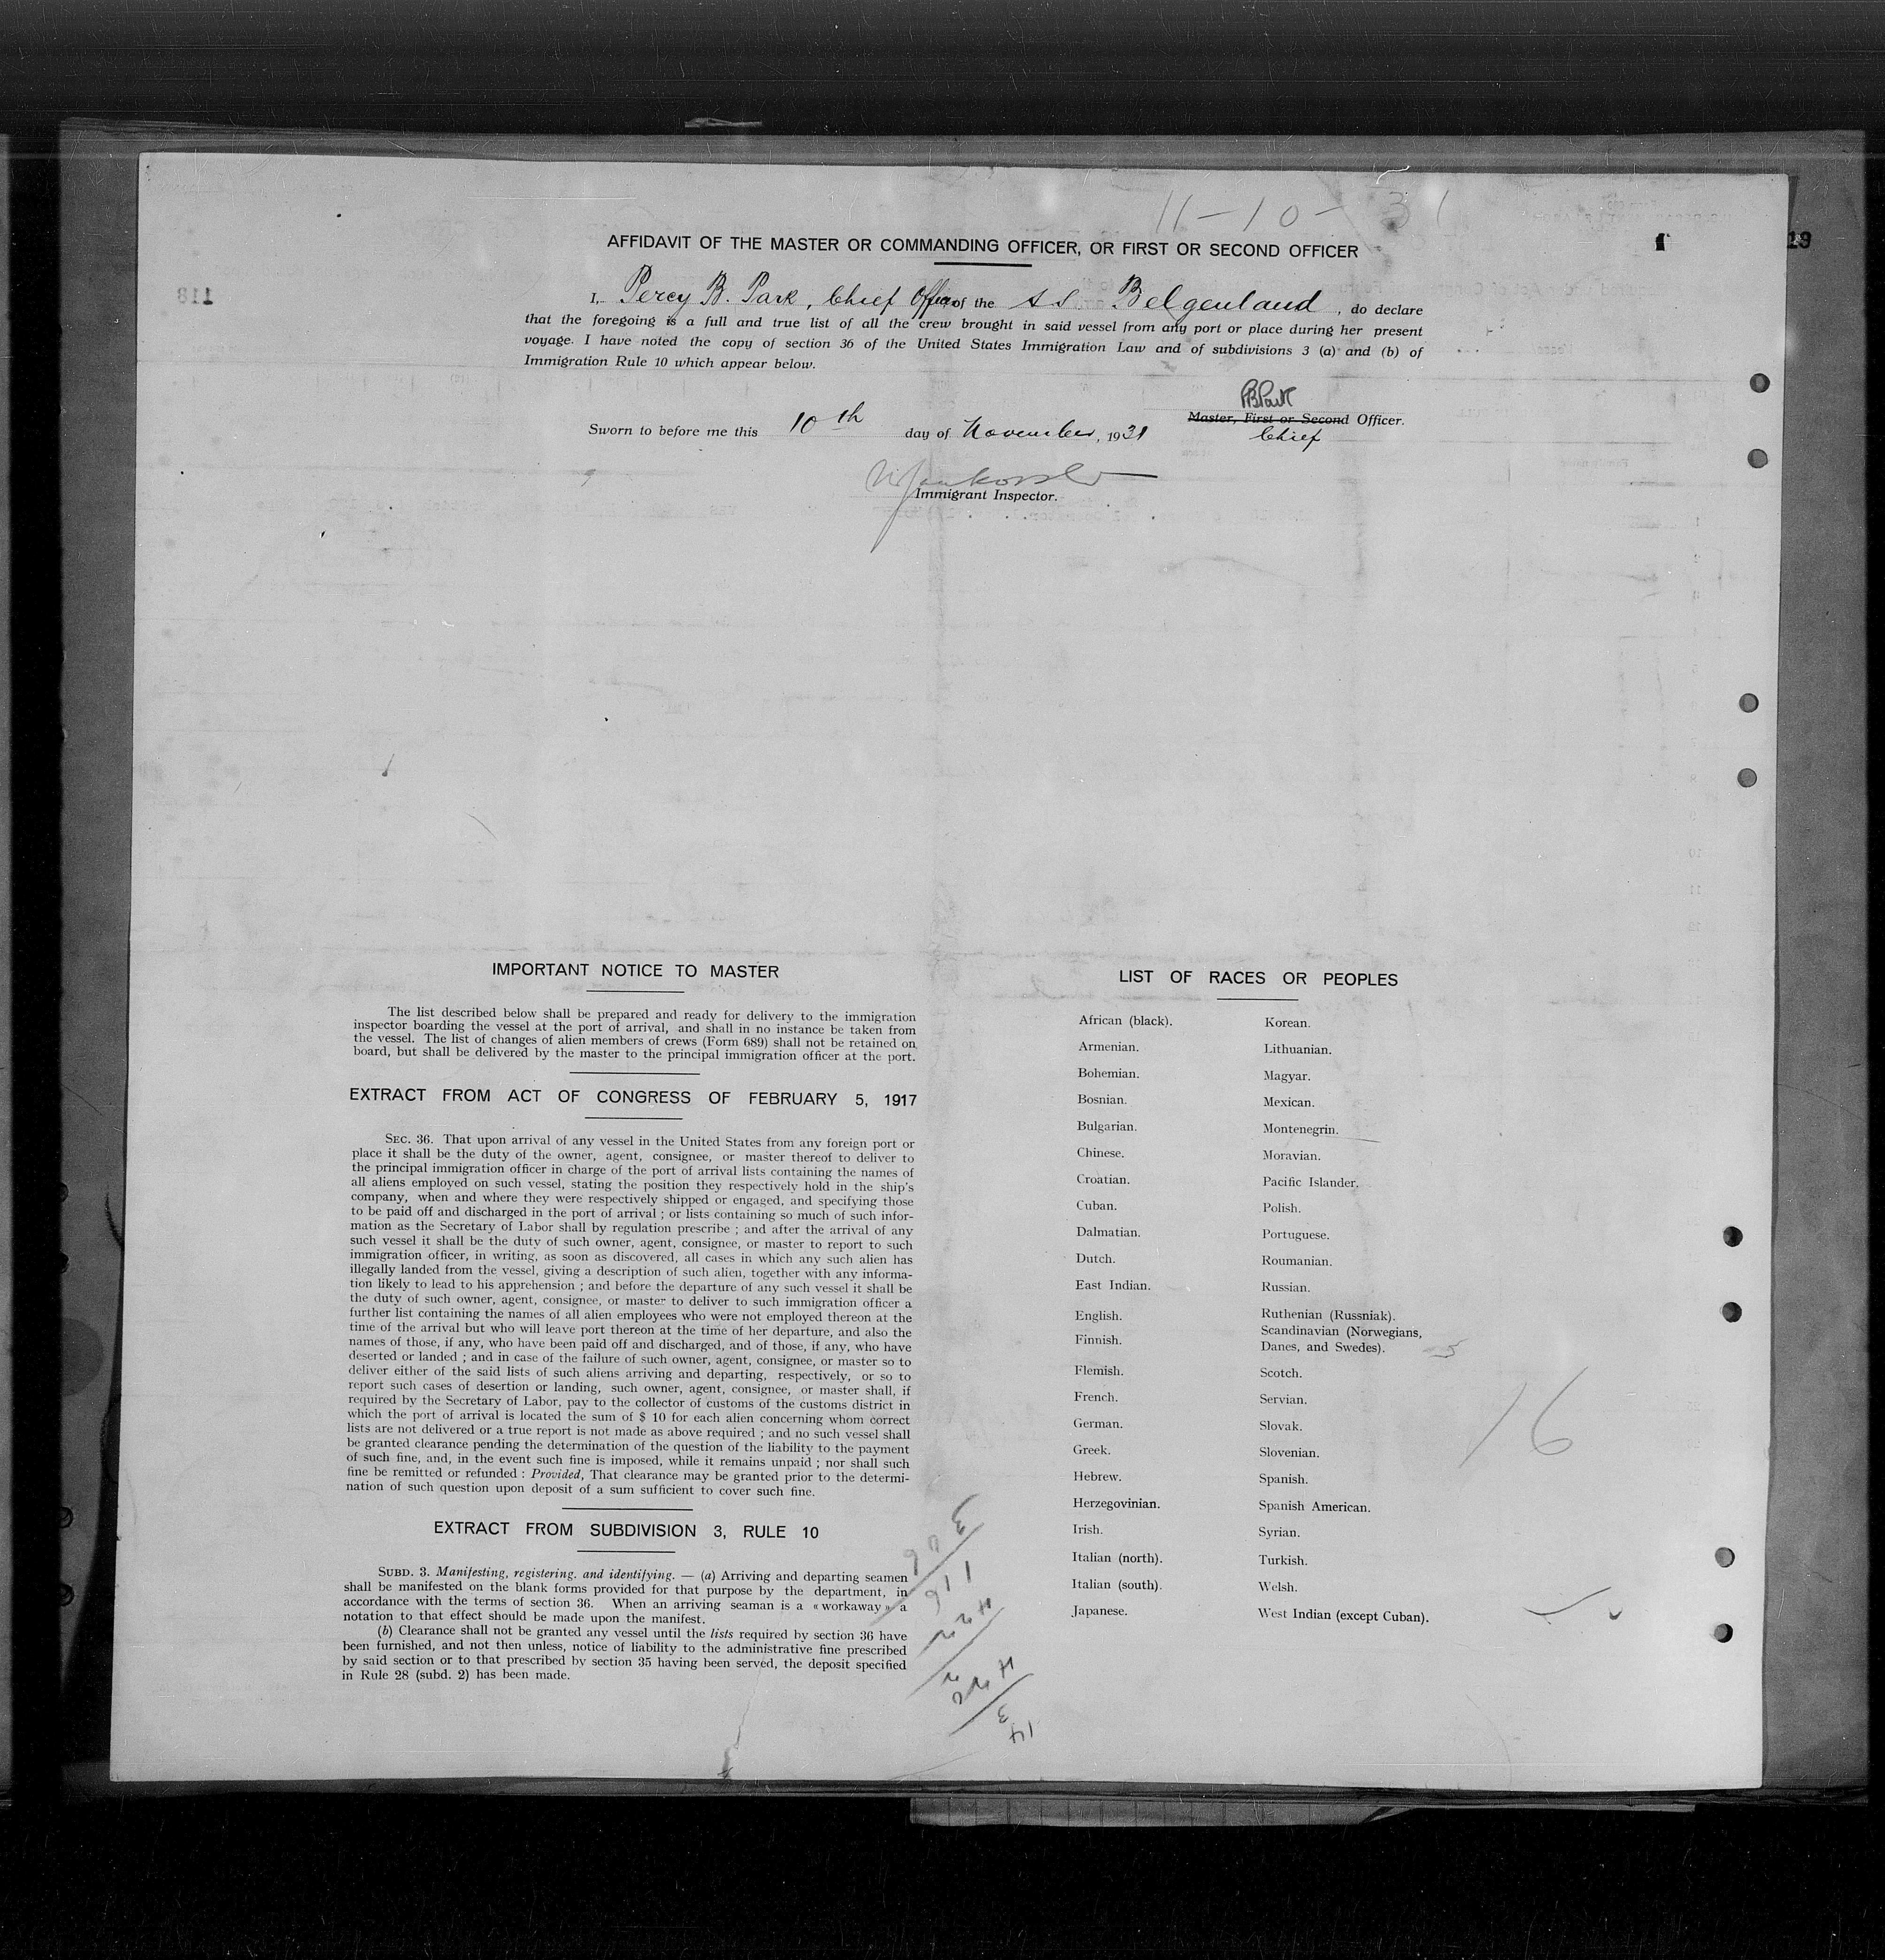 11-10-31
19
AFFIDAVIT OF THE MASTER OR COMMANDING OFFICER, OR FIRST OR SECOND OFFICER
118
I, Percy B. Park, Chief Officer of the S S. Belgenland, do declare
that the foregoing is a full and true list of all the crew brought in said vessel from any port or place during her present
voyage. I have noted the copy of section 36 of the United States Immigration Law and of subdivisions 3 (a) and (b) of
Immigration Rule 10 which appear below.
PBPark
Master, First or Second Officer.
Chief
Sworn to before me this 10th day of November, 1931
Immigrant Inspector.
IMPORTANT NOTICE TO MASTER
The list described below shall be prepared and ready for delivery to the immigration
inspector boarding the vessel at the port of arrival, and shall in no instance be taken from
the vessel. The list of changes of alien members of crews (Form 689) shall not be retained on
board, but shall be delivered by the master to the principal immigration officer at the port.
EXTRACT FROM ACT OF CONGRESS OF FEBRUARY 5, 1917
SEC. 36. That upon arrival of any vessel in the United States from any foreign port or
place it shall be the duty of the owner, agent, consignee, or master thereof to deliver to
the principal immigration officer in charge of the port of arrival lists containing the names of
all aliens employed on such vessel, stating the position they respectively hold in the ship's
company, when and where they were respectively shipped or engaged, and specifying those
to be paid off and discharged in the port of arrival ; or lists containing so much of such infor-
mation as the Secretary of Labor shall by regulation prescribe ; and after the arrival of any
such vessel it shall be the duty of such owner, agent, consignee, or master to report to such
immigration officer, in writing, as soon as discovered, all cases in which any such alien has
illegally landed from the vessel, giving a description of such alien, together with any informa-
tion likely to lead to his apprehension ; and before the departure of any such vessel it shall be
the duty of such owner, agent, consignee, or master to deliver to such immigration officer a
further list containing the names of all alien employees who were not employed thereon at the
time of the arrival but who will leave port thereon at the time of her departure, and also the
names of those, if any, who have been paid off and discharged, and of those, if any, who have
deserted or landed ; and in case of the failure of such owner, agent, consignee, or master so to
deliver either of the said lists of such aliens arriving and departing, respectively, or so to
report such cases of desertion or landing, such owner, agent, consignee, or master shall, if
required by the Secretary of Labor, pay to the collector of customs of the customs district in
which the port of arrival is located the sum of $ 10 for each alien concerning whom correct
lists are not delivered or a true report is not made as above required ; and no such vessel shall
be granted clearance pending the determination of the question of the liability to the payment
of such fine, and, in the event such fine is imposed, while it remains unpaid ; nor shall such
fine be remitted or refunded : Provided, That clearance may be granted prior to the determi-
nation of such question upon deposit of a sum sufficient to cover such fine.
EXTRACT FROM SUBDIVISION 3, RULE 10
SUBD. 3. Manifesting, registering. and identifying. — (a) Arriving and departing seamen
shall be manifested on the blank forms provided for that purpose by the department, in
accordance with the terms of section 36. When an arriving seaman is a « workaway » a
notation to that effect should be made upon the manifest.
(b) Clearance shall not be granted any vessel until the lists required by section 36 have
been furnished, and not then unless, notice of liability to the administrative fine prescribed
by said section or to that prescribed by section 35 having been served, the deposit specified
in Rule 28 (subd. 2) has been made.
LIST OF RACES OR PEOPLES
African (black).
Armenian.
Bohemian.
Bosnian.
Bulgarian.
Chinese.
Croatian.
Cuban.
Dalmatian.
Dutch.
East Indian.
English.
Finnish.
Flemish.
French.
German.
Greek.
Hebrew.
Herzegovinian.
Irish.
Italian (north).
Italian (south).
Japanese.
Korean.
Lithuanian.
Magyar.
Mexican.
Montenegrin.
Moravian.
Pacific Islander.
Polish.
Portuguese.
Roumanian.
Russian.
Ruthenian (Russniak).
Scandinavian (Norwegians,
Danes, and Swedes).
Scotch.
Servian.
Slovak.
Slovenian.
Spanish.
Spanish American.
Syrian.
Turkish.
Welsh.
West Indian (except Cuban).
16